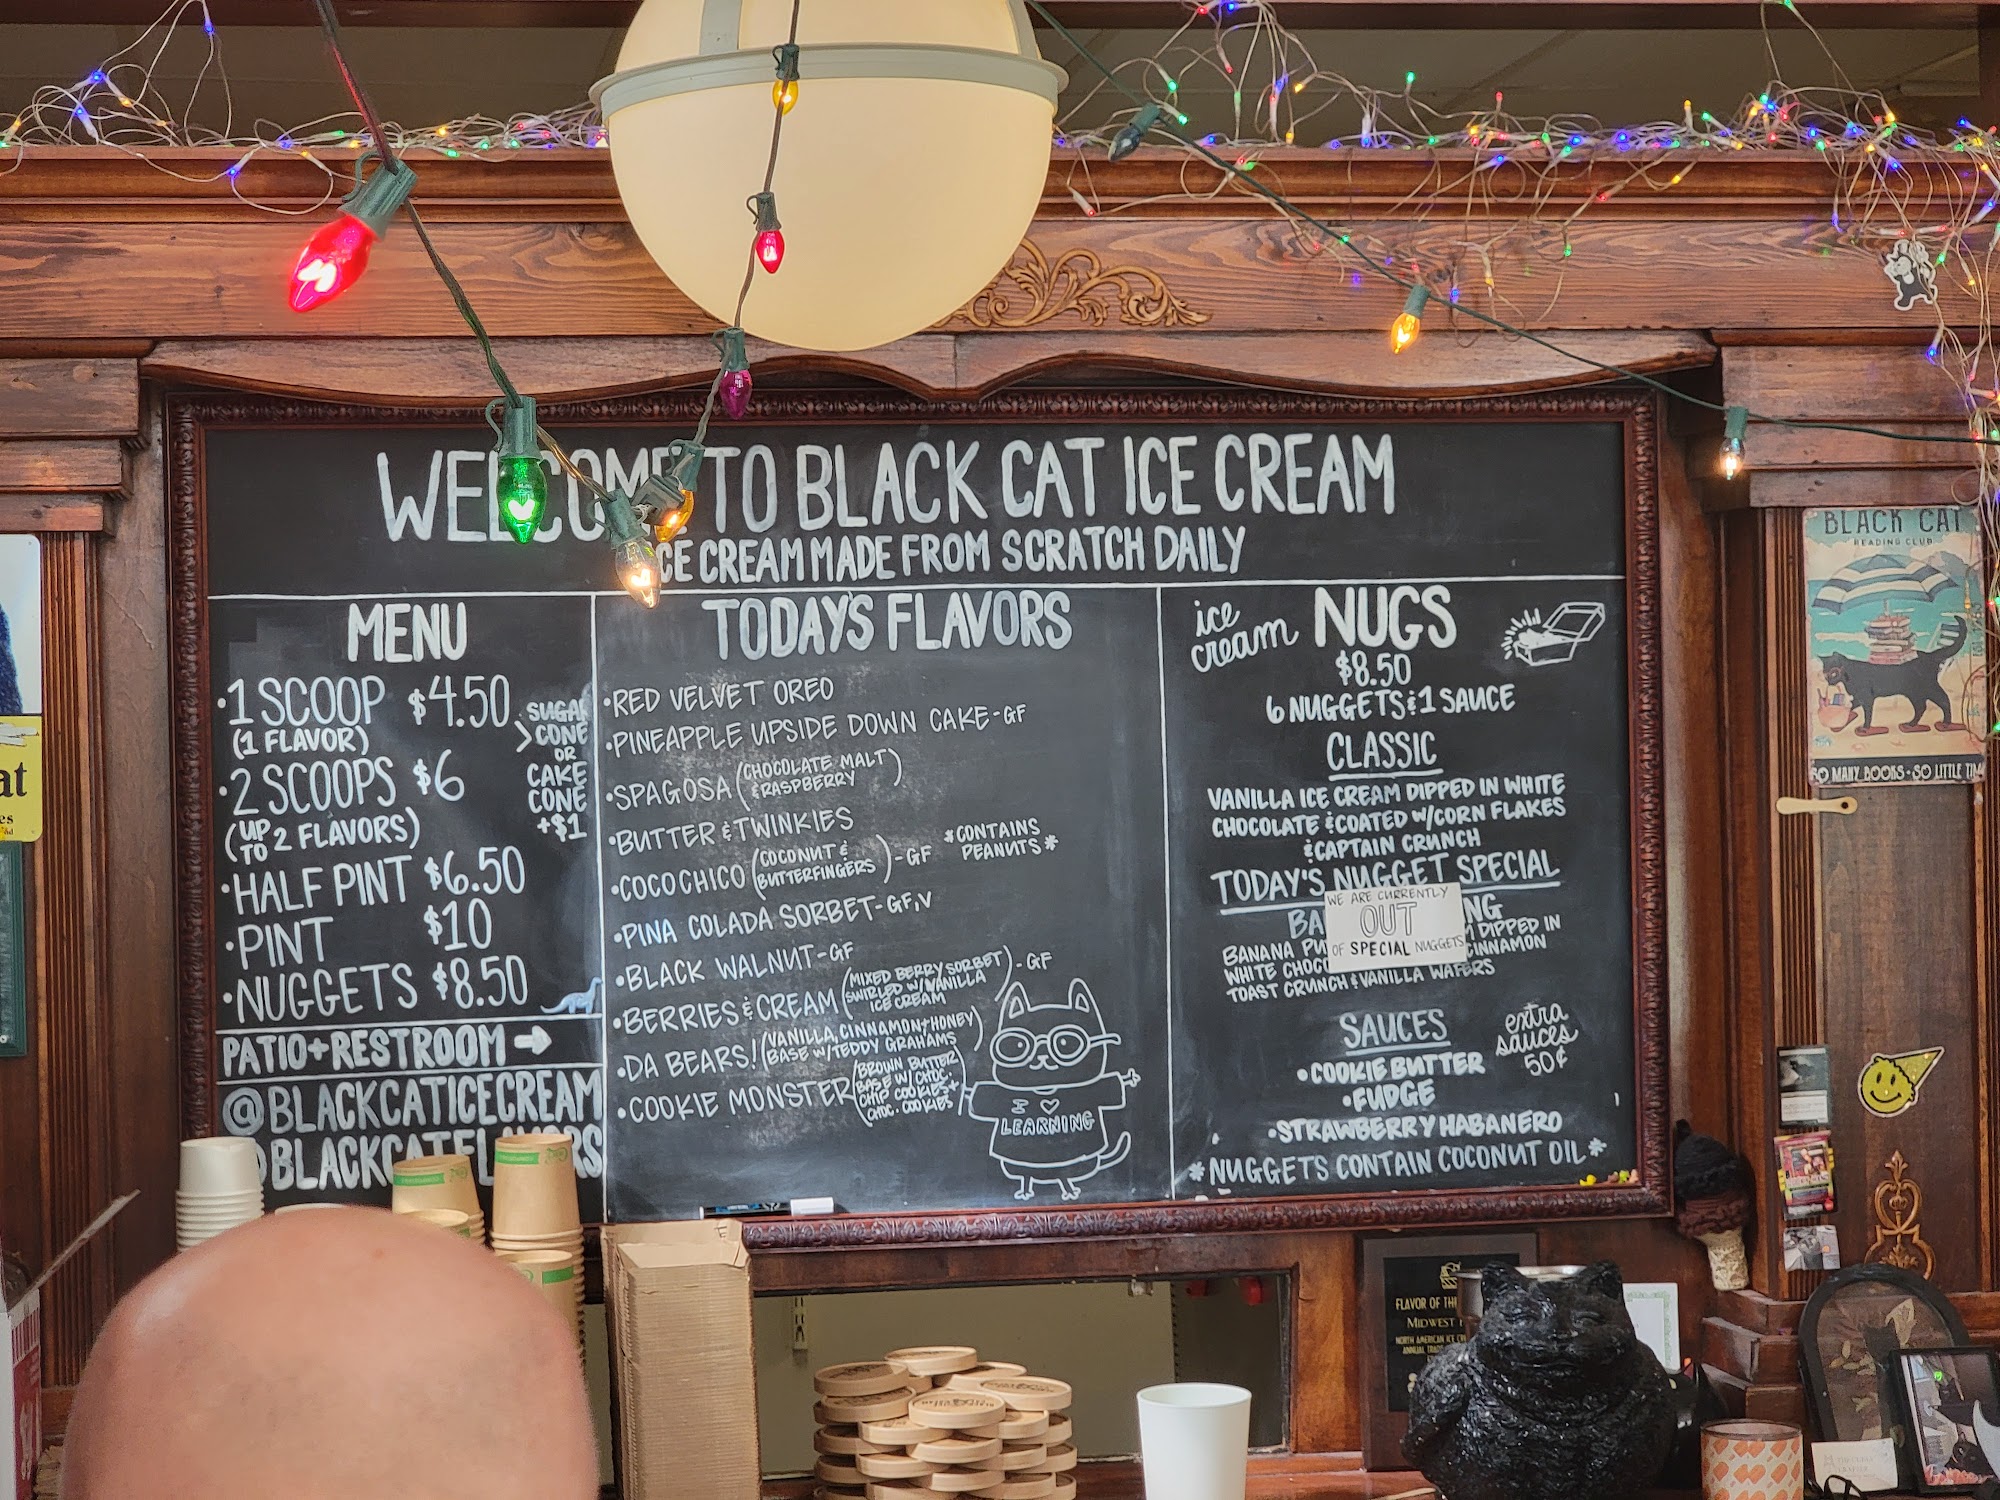 WELCOME TO BLACK CAT ICE CREAM
ICE CREAM MADE FROM SCRATCH DAILY
MENU
•1 SCOOP $4.50
(1 FLAVOR)
•2 SCOOPS $6
(UP TO 2 FLAVORS)
SUGAR
CONE
OR
CAKE
CONE
+$1
•HALF PINT $6.50
•PINT $10
•NUGGETS $8.50
PATIO+RESTROOM
@BLACKCATICECREAM
@BLACKCATFLAVORS
TODAY'S FLAVORS
•RED VELVET OREO
•PINEAPPLE UPSIDE DOWN CAKE-GF
•SPAGOSA (CHOCOLATE MALT & RASPBERRY)
•BUTTER & TWINKIES
•COCOCHICO (COCONUT & BUTTERFINGERS)-GF *CONTAINS PEANUTS*
•PINA COLADA SORBET-GF,V
•BLACK WALNUT-GF
•BERRIES & CREAM (MIXED BERRY SORBET SWIRLED W/ VANILLA ICE CREAM)-GF
•DA BEARS! (VANILLA, CINNAMON+HONEY BASE W/TEDDY GRAHAMS)
•COOKIE MONSTER (BROWN BUTTER BASE W/ CHOC. CHIP COOKIES + CHOC. COOKIES)
I ♡
LEARNING
ice cream NUGS
$8.50
6 NUGGETS & 1 SAUCE
CLASSIC
VANILLA ICE CREAM DIPPED IN WHITE
CHOCOLATE & COATED W/CORN FLAKES
& CAPTAIN CRUNCH
TODAY'S NUGGET SPECIAL
BA NG
BANANA PU M DIPPED IN
WHITE CHOC CINNAMON
TOAST CRUNCH & VANILLA WAFERS
WE ARE CURRENTLY
OUT
OF SPECIAL NUGGETS
SAUCES
•COOKIE BUTTER
•FUDGE
•STRAWBERRY HABANERO
extra
sauces
50¢
*NUGGETS CONTAIN COCONUT OIL*
BLACK CAT
READING CLUB
SO MANY BOOKS • SO LITTLE TIM
at
es
FLAVOR OF THE
MIDWEST
NORTH AMERICAN ICE CRE